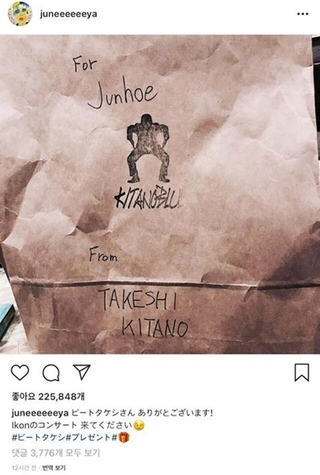 juneeeeeeya
For
Junhoe
From
TAKESHI
KITANO
좋아요 225,848개
juneeeeeeya ビートタケシさん ありがとございます!
Ikonのコンサート 来てください😉
#ビートタケシ#プレゼント#🎁
댓글 3,776개 모두 보기
12시간 전 · 번역 보기